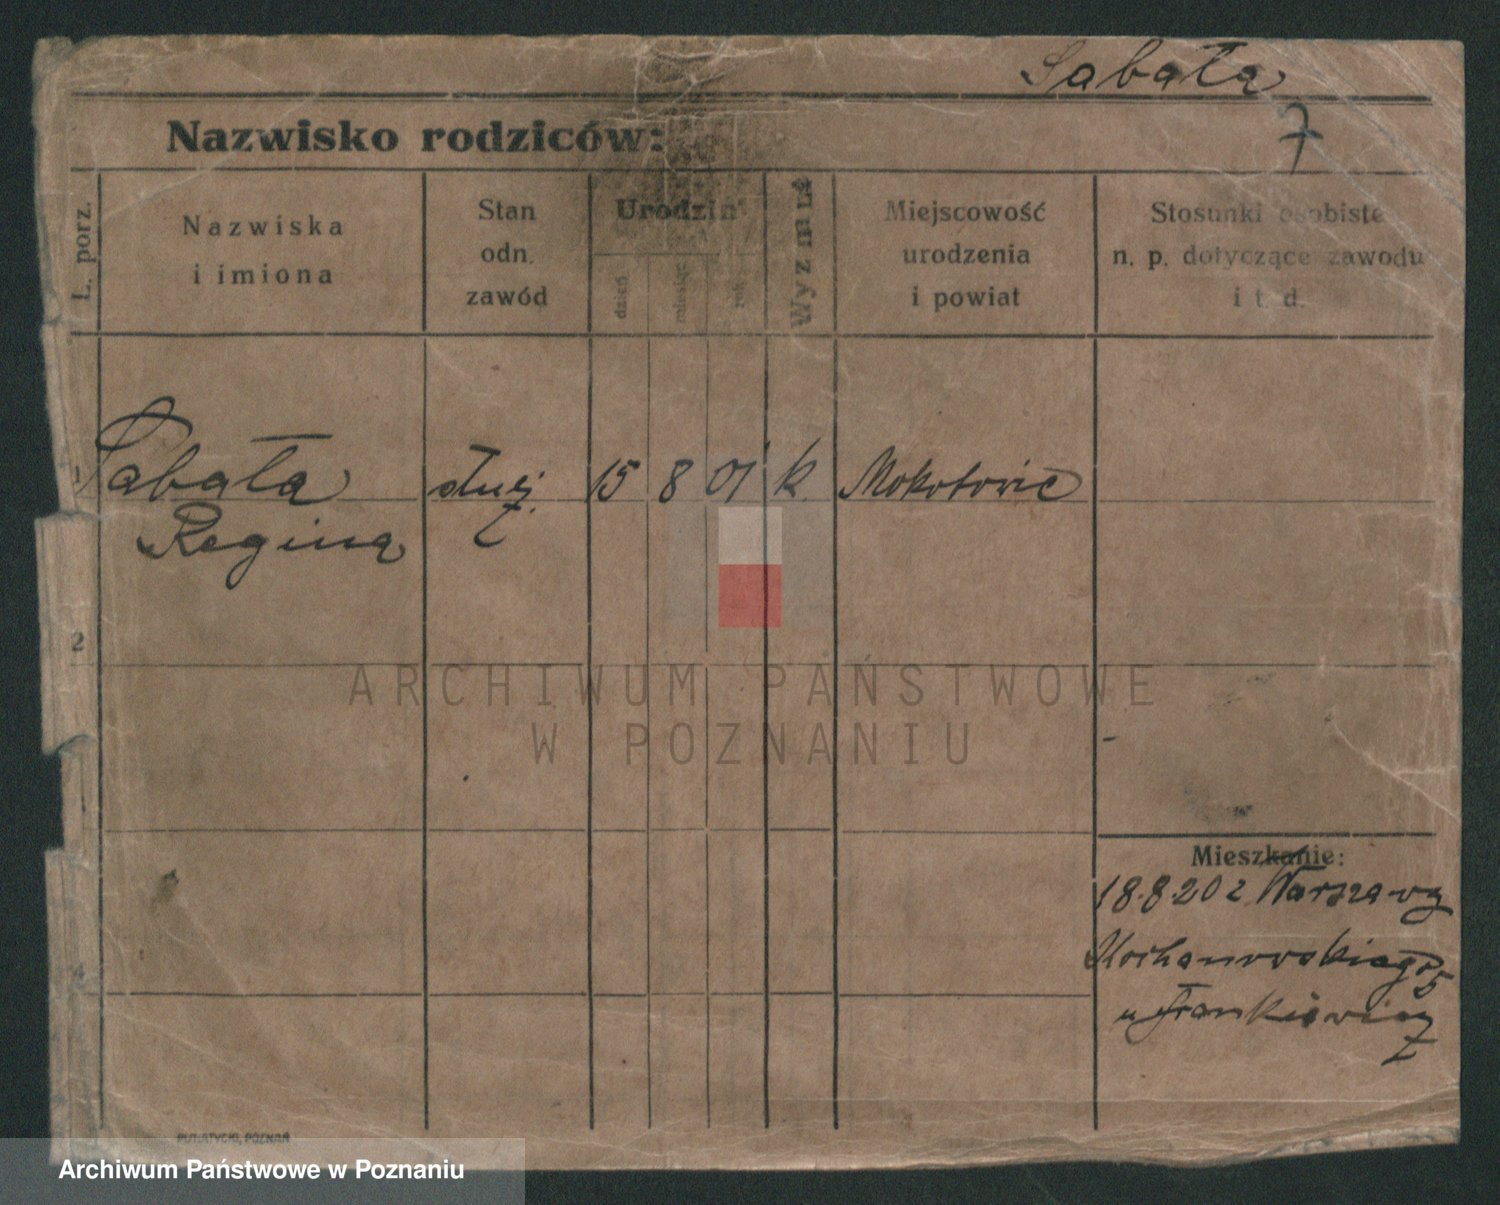 Sabała
7
Nazwisko rodziców:
L. porz.
Nazwiska
i imiona
Stan
odn.
zawód
Urodzin
dzień
miesiąc
rok
Wyzn
Miejscowość
urodzenia
i powiat
Stosunki osobiste
n. p. dotyczące zawodu
i t. d.
1
Sabała
służ.
15 8 01 k.
Mokotowie
Regina
2
ARCHIWUM PAŃSTWOWE
W POZNANIU
Mieszkanie:
18.8.20 z Warszawy
Kochanowskiego 5
u Frankiewicz
4
PUTIATYCKI, POZNAŃ
Archiwum Państwowe w Poznaniu